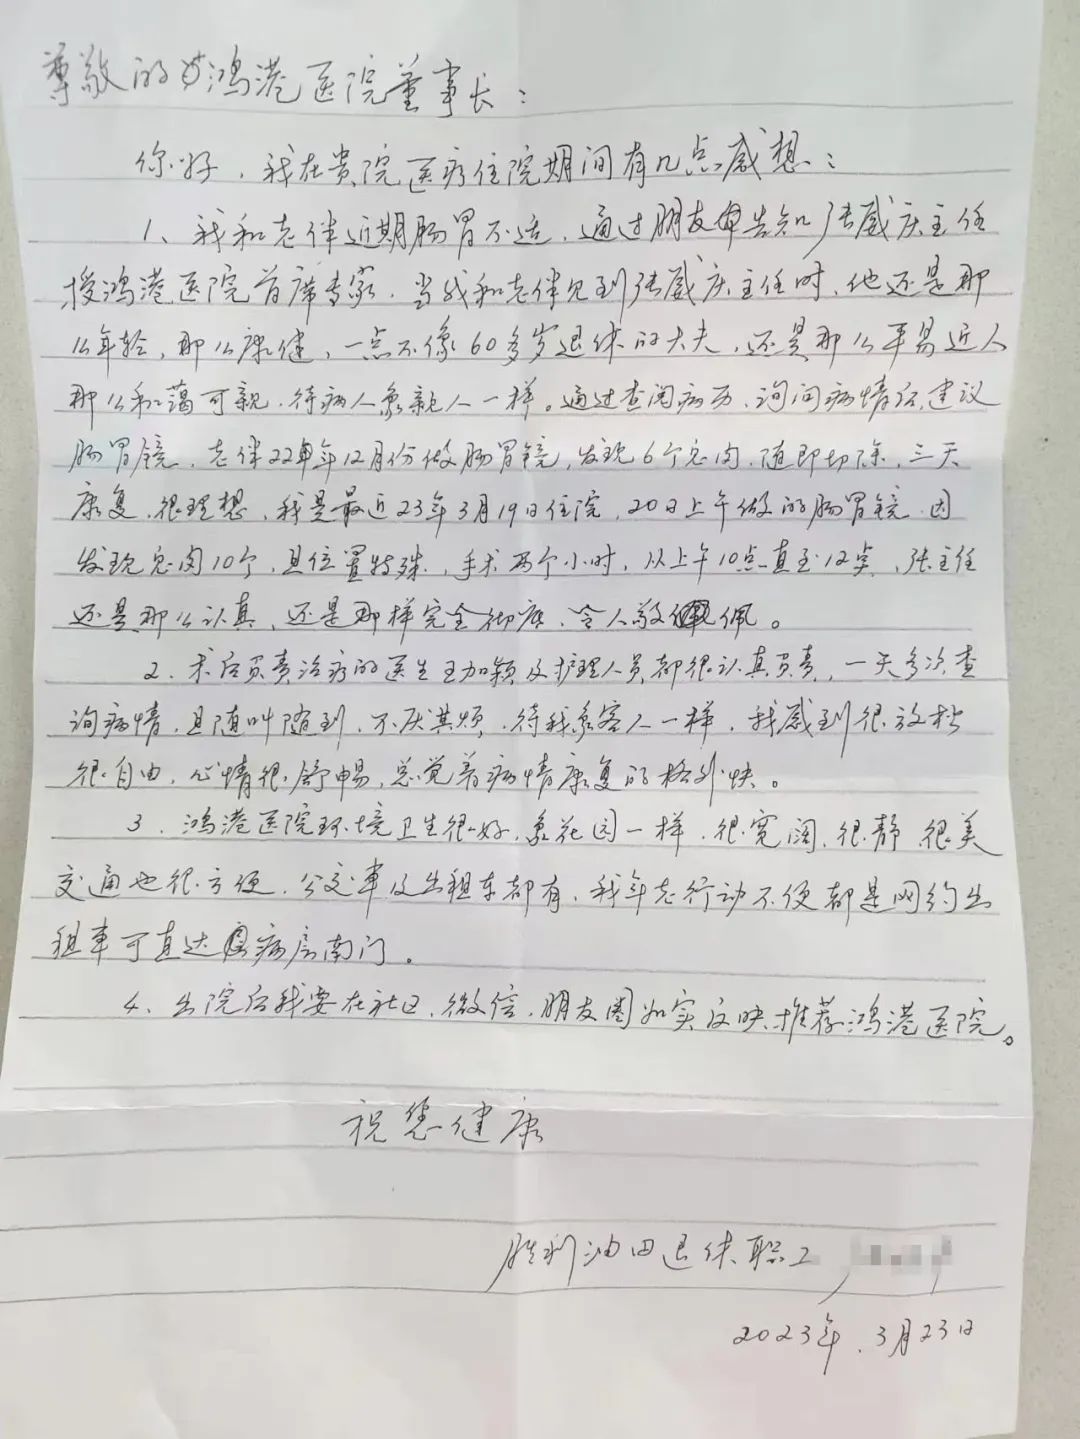 尊敬的鸿港医院董事长：
你好，我在贵院医疗住院期间有几点感想：
1、我和老伴近期肠胃不适，通过朋友告知张威庆主任
授鸿港医院首席专家，当我和老伴见到张威庆主任时，他还是那
么年轻，那么康健，一点不像60多岁退休的大夫，还是那么平易近人
那么和蔼可亲，待病人象亲人一样。通过查阅病历、询问病情后，建议
肠胃镜，老伴22年12月份做肠胃镜，发现6个息肉，随即切除，三天
康复，很理想，我是最近23年3月19日住院，20日上午做的肠胃镜，因
发现息肉10个，且位置特殊，手术两个小时，从上午10点一直至12点，张主任
还是那么认真，还是那样完全彻底，令人敬佩。
2、术后负责治疗的医生王加颖及护理人员都很认真负责，一天多次查
询病情，且随叫随到，不厌其烦，待我象客人一样，我感到很放松
很自由，心情很舒畅，总觉着病情康复的格外快。
3、鸿港医院环境卫生很好，象花园一样，很宽阔，很静，很美
交通也很方便，公交車及出租车都有，我年老行动不便都是网约出
租車可直达病房南门。
4、出院后我要在社区，微信，朋友圈如实反映推荐鸿港医院。
祝您健康
胜利油田退休职工
2023年.3月23日